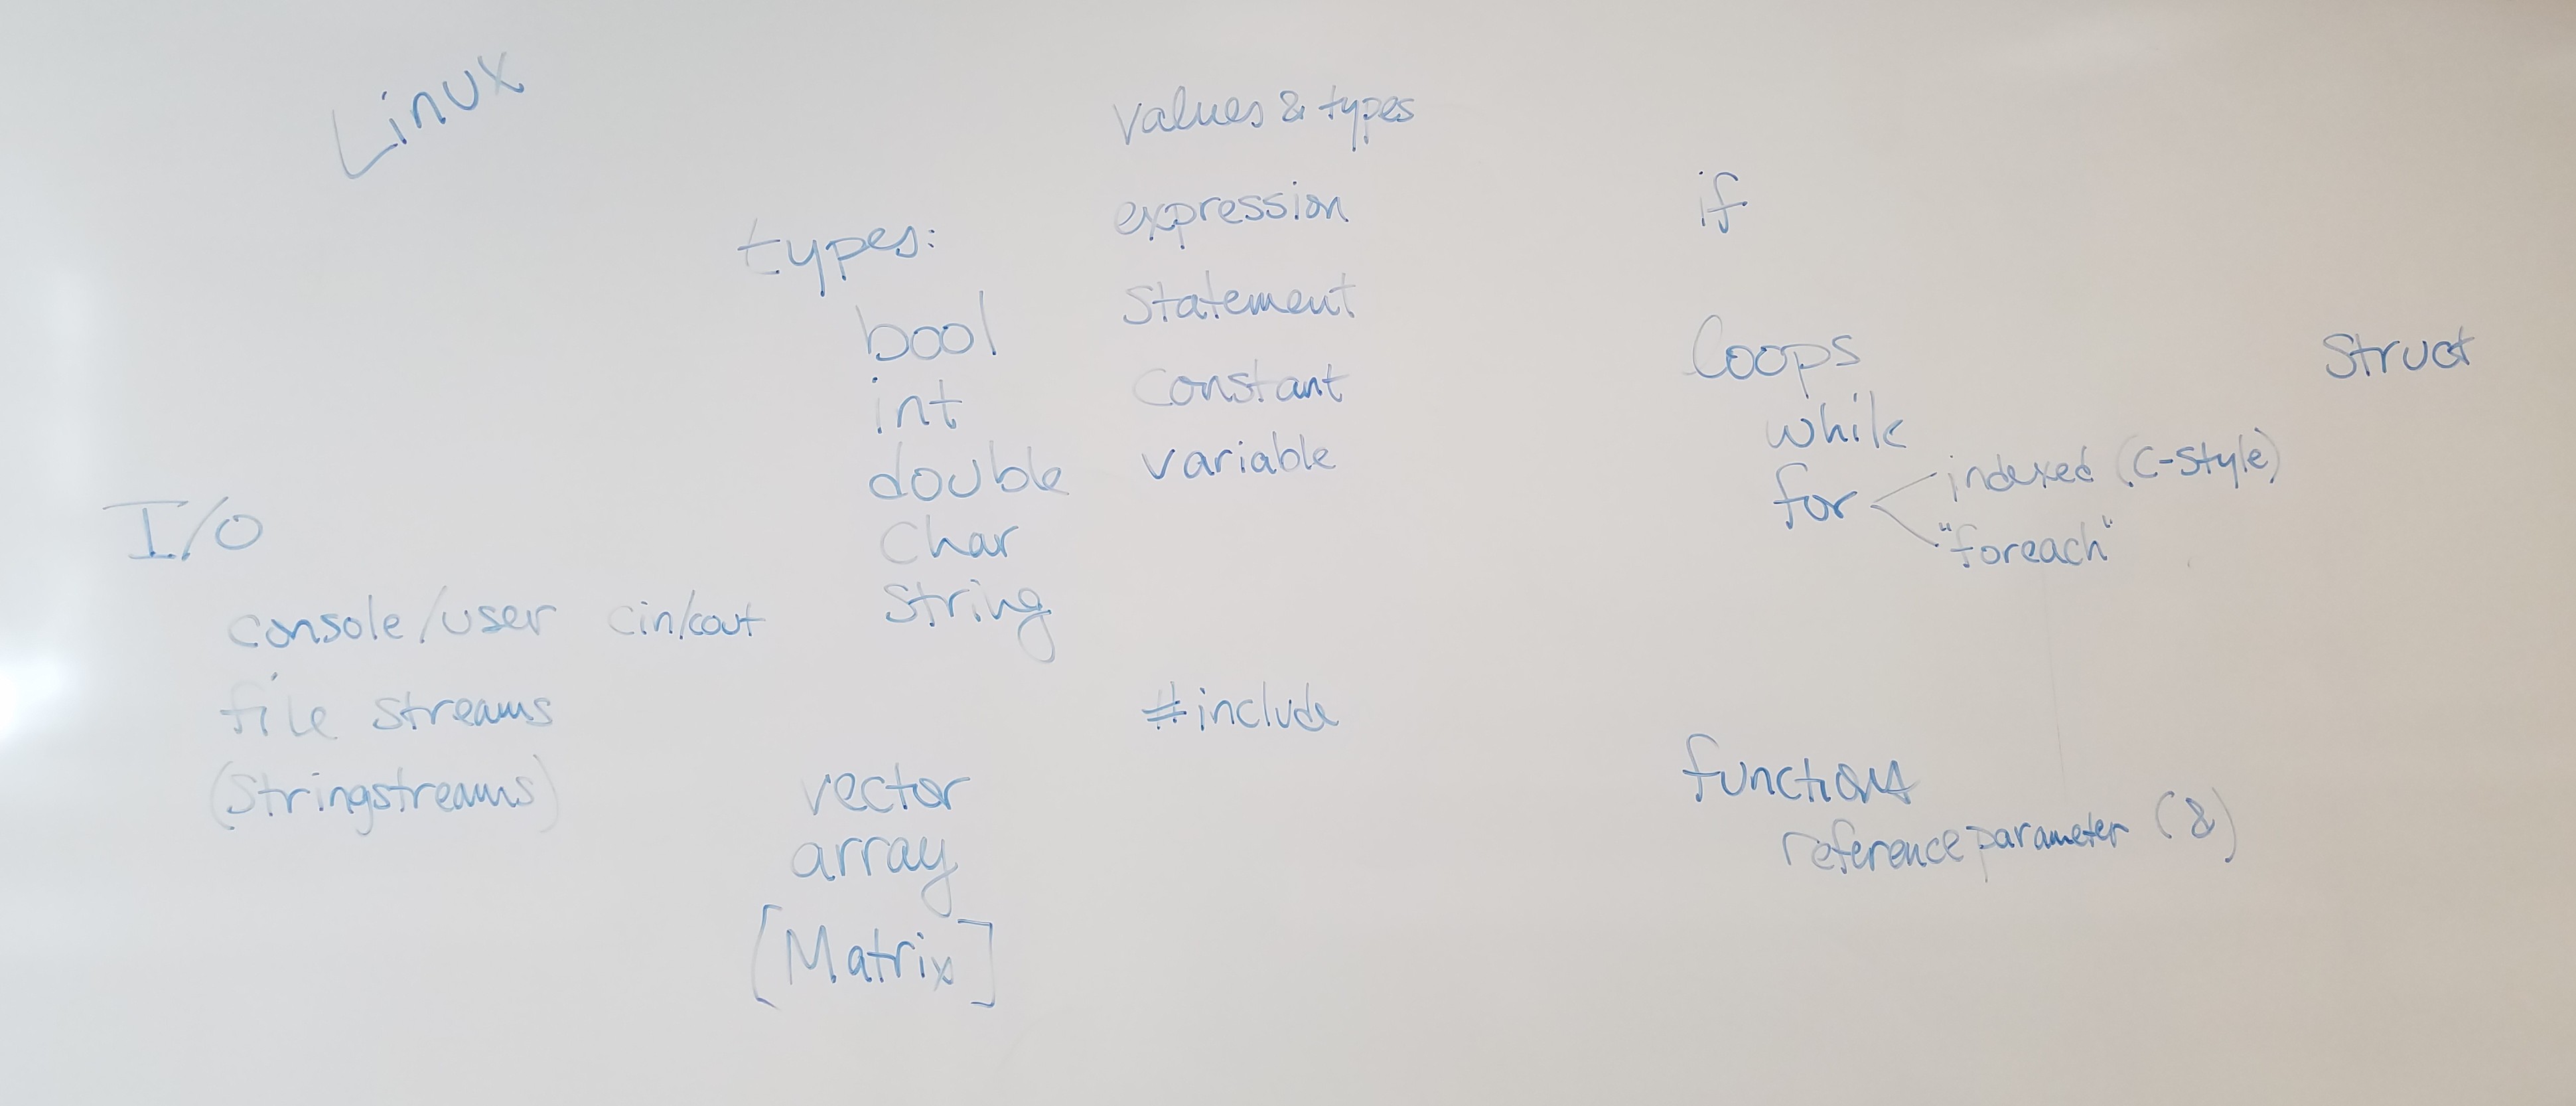 Linux
I/O
console/user cin/cout
file streams
(Stringstreams)
types:
bool
int
double
char
string
vector
array
[Matrix]
values & types
expression
statement
constant
variable
#include
if
loops
while
for
indexed (C-style)
"foreach"
functions
reference parameter (&)
struct